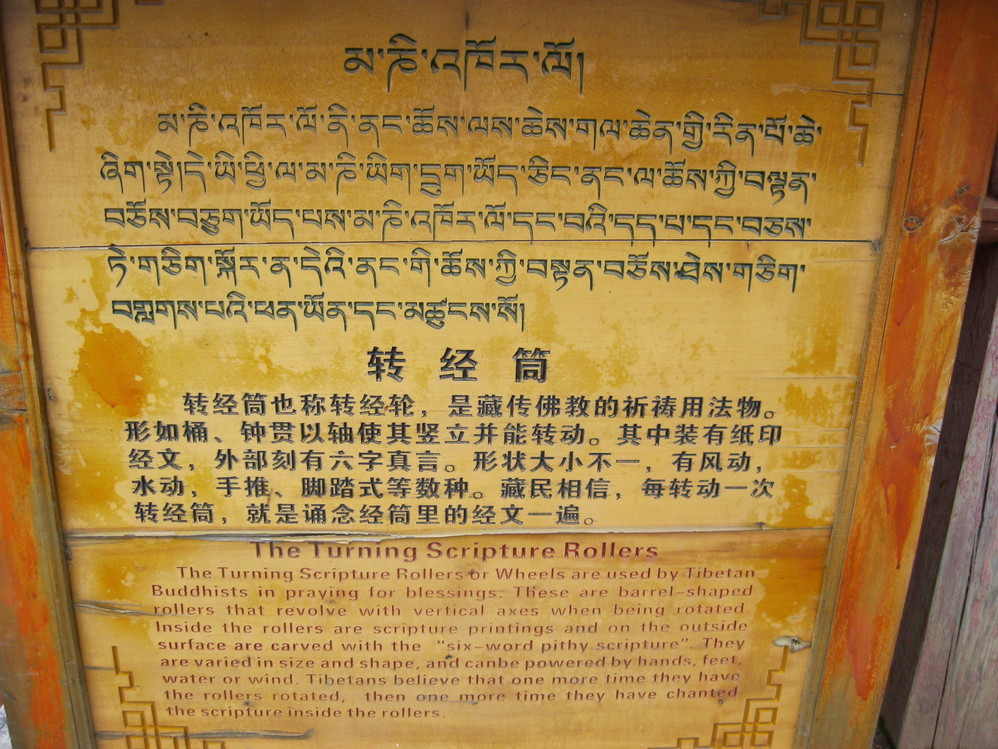 མ་ཎི་འཁོར་ལོ།
མ་ཎི་འཁོར་ལོ་ནི་ནང་ཆོས་ལས་ཆེས་གལ་ཆེན་གྱི་རིན་པོ་ཆེ་
ཞིག་སྟེ།དེ་ཡི་ཕྱི་ལ་མ་ཎི་ཡིག་དྲུག་ཡོད་ཅིང་ནང་ལ་ཆོས་ཀྱི་བལྟན་
བཅོས་བཅུག་ཡོད་པས་མ་ཎི་འཁོར་ལོ་དང་བའི་དད་པ་དང་བཅས་
ཏེ་གཅིག་སྐོར་ན་དེའི་ནང་གི་ཆོས་ཀྱི་བསྟན་བཅོས་ཐེས་གཅིག་
བཀླགས་པའི་ཕན་ཡོན་དང་མཚུངས་སོ།
转 经 筒
转经筒也称转经轮，是藏传佛教的祈祷用法物。
形如桶、钟贯以轴使其竖立并能转动。其中装有纸印
经文，外部刻有六字真言。形状大小不一，有风动，
水动，手推、脚踏式等数种。藏民相信，每转动一次
转经筒，就是诵念经筒里的经文一遍。
The Turning Scripture Rollers
The Turning Scripture Rollers or Wheels are used by Tibetan
Buddhists in praying for blessings. These are barrel-shaped
rollers that revolve with vertical axes when being rotated.
Inside the rollers are scripture printings and on the outside
surface are carved with the "six-word pithy scripture". They
are varied in size and shape, and canbe powered by hands, feet,
water or wind. Tibetans believe that one more time they have
the rollers rotated, then one more time they have chanted
the scripture inside the rollers.